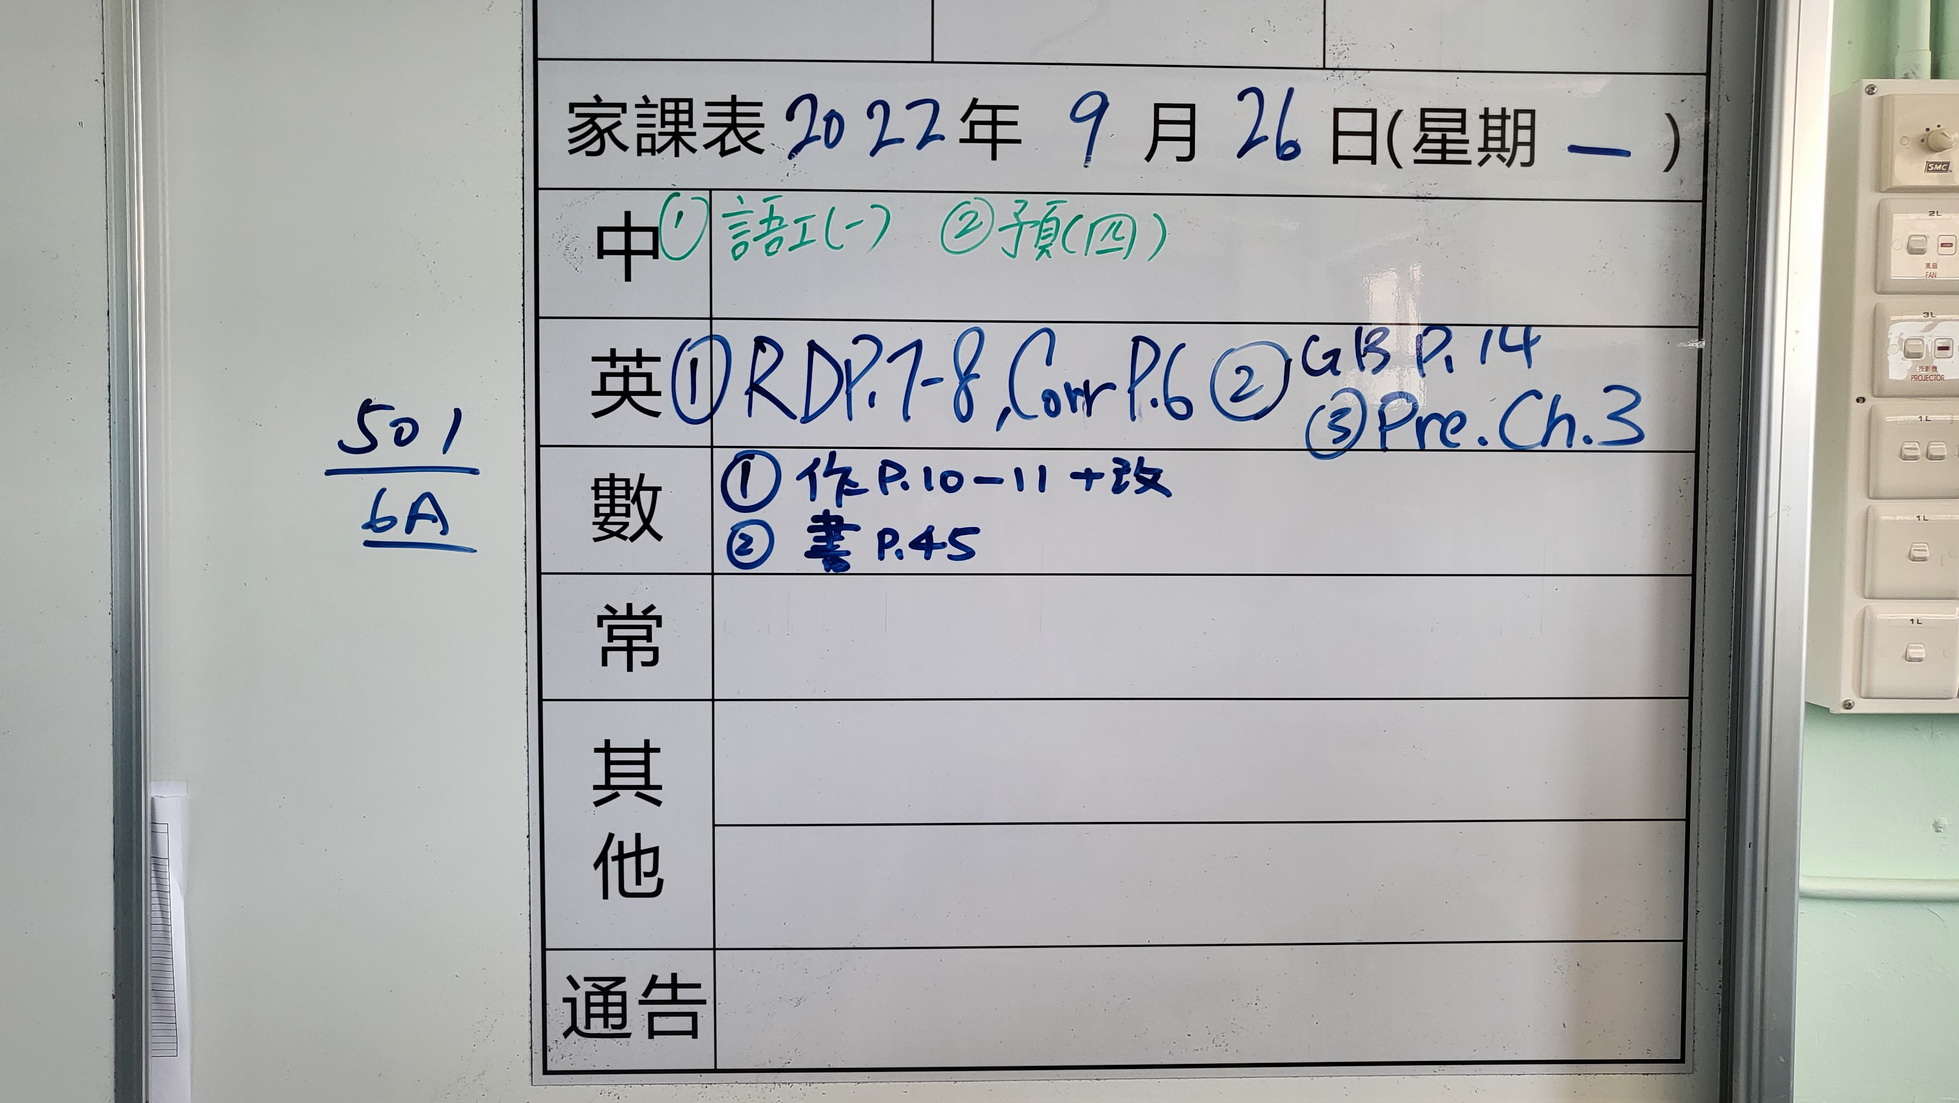 家課表 2022年 9月 26日(星期 一 )
中 ① 語工(一) ② 預(四)
英 ① RD P.7-8, Corr P.6 ② GB P.14
③ Pre. Ch. 3
501
6A
數 ① 作 P.10-11 +改
② 書 P.45
常
其他
通告
SMC
2L
風扇
FAN
3L
投影機
PROJECTOR
1L
1L
1L